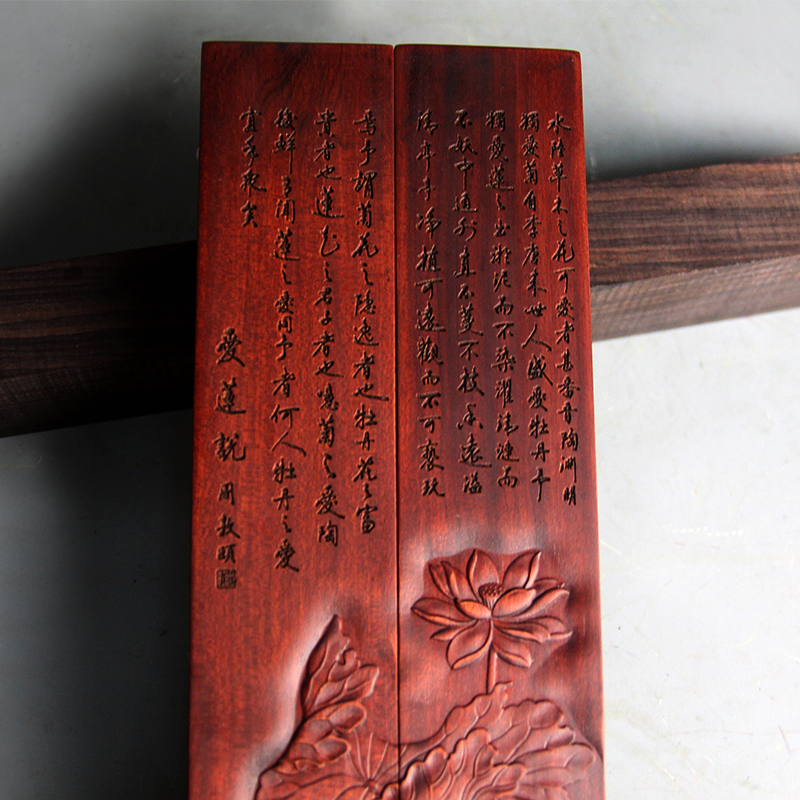 水陸草木之花可愛者甚蕃晉陶淵明
獨愛菊自李唐來世人盛愛牡丹予
獨愛蓮之出淤泥而不染濯清漣而
不妖中通外直不蔓不枝香遠溢
清亭亭净植可遠觀而不可褻玩
焉予謂菊花之隱逸者也牡丹花之富
貴者也蓮花之君子者也噫菊之愛陶
後鮮有聞蓮之愛同予者何人牡丹之愛
宜乎衆矣
愛蓮說 周敦頤